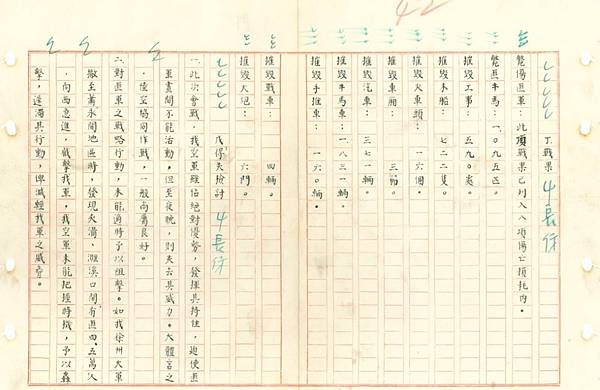 42
丁、戰果 4長仿
斃傷匪軍：此項戰果已列入八項傷亡損耗內。
斃匪牛馬：一、〇九五匹。
摧毀工事：五九〇處。
摧毀木船：七二隻。
摧毀火車頭：一六個。
摧毀車廂：三輛。
摧毀汽車：三七一輛。
摧毀牛馬車：一、八三一輛。
摧毀手推車：一六〇輛。
摧毀戰車：四輛。
摧毀火炮：六門。
戊、得失檢討 4長仿
一、此次會戰，我空軍雖佔絕對優勢，發揮具持性，迫使匪
軍晝間不能活動。但至夜晚，則失去其威力。大體言之
，陸空協同作戰，一般尚屬良好。
二、對匪軍之戰略行動，未能適時予以阻擊。如我徐州大軍
撤至蕭永間地區時，發現大溝、濉溪口間，有匪四、五萬人
，向西急進，截擊我軍，我空軍未能把握時機，予以轟
擊，遲滯其行動，俾減輕我軍之威脅。